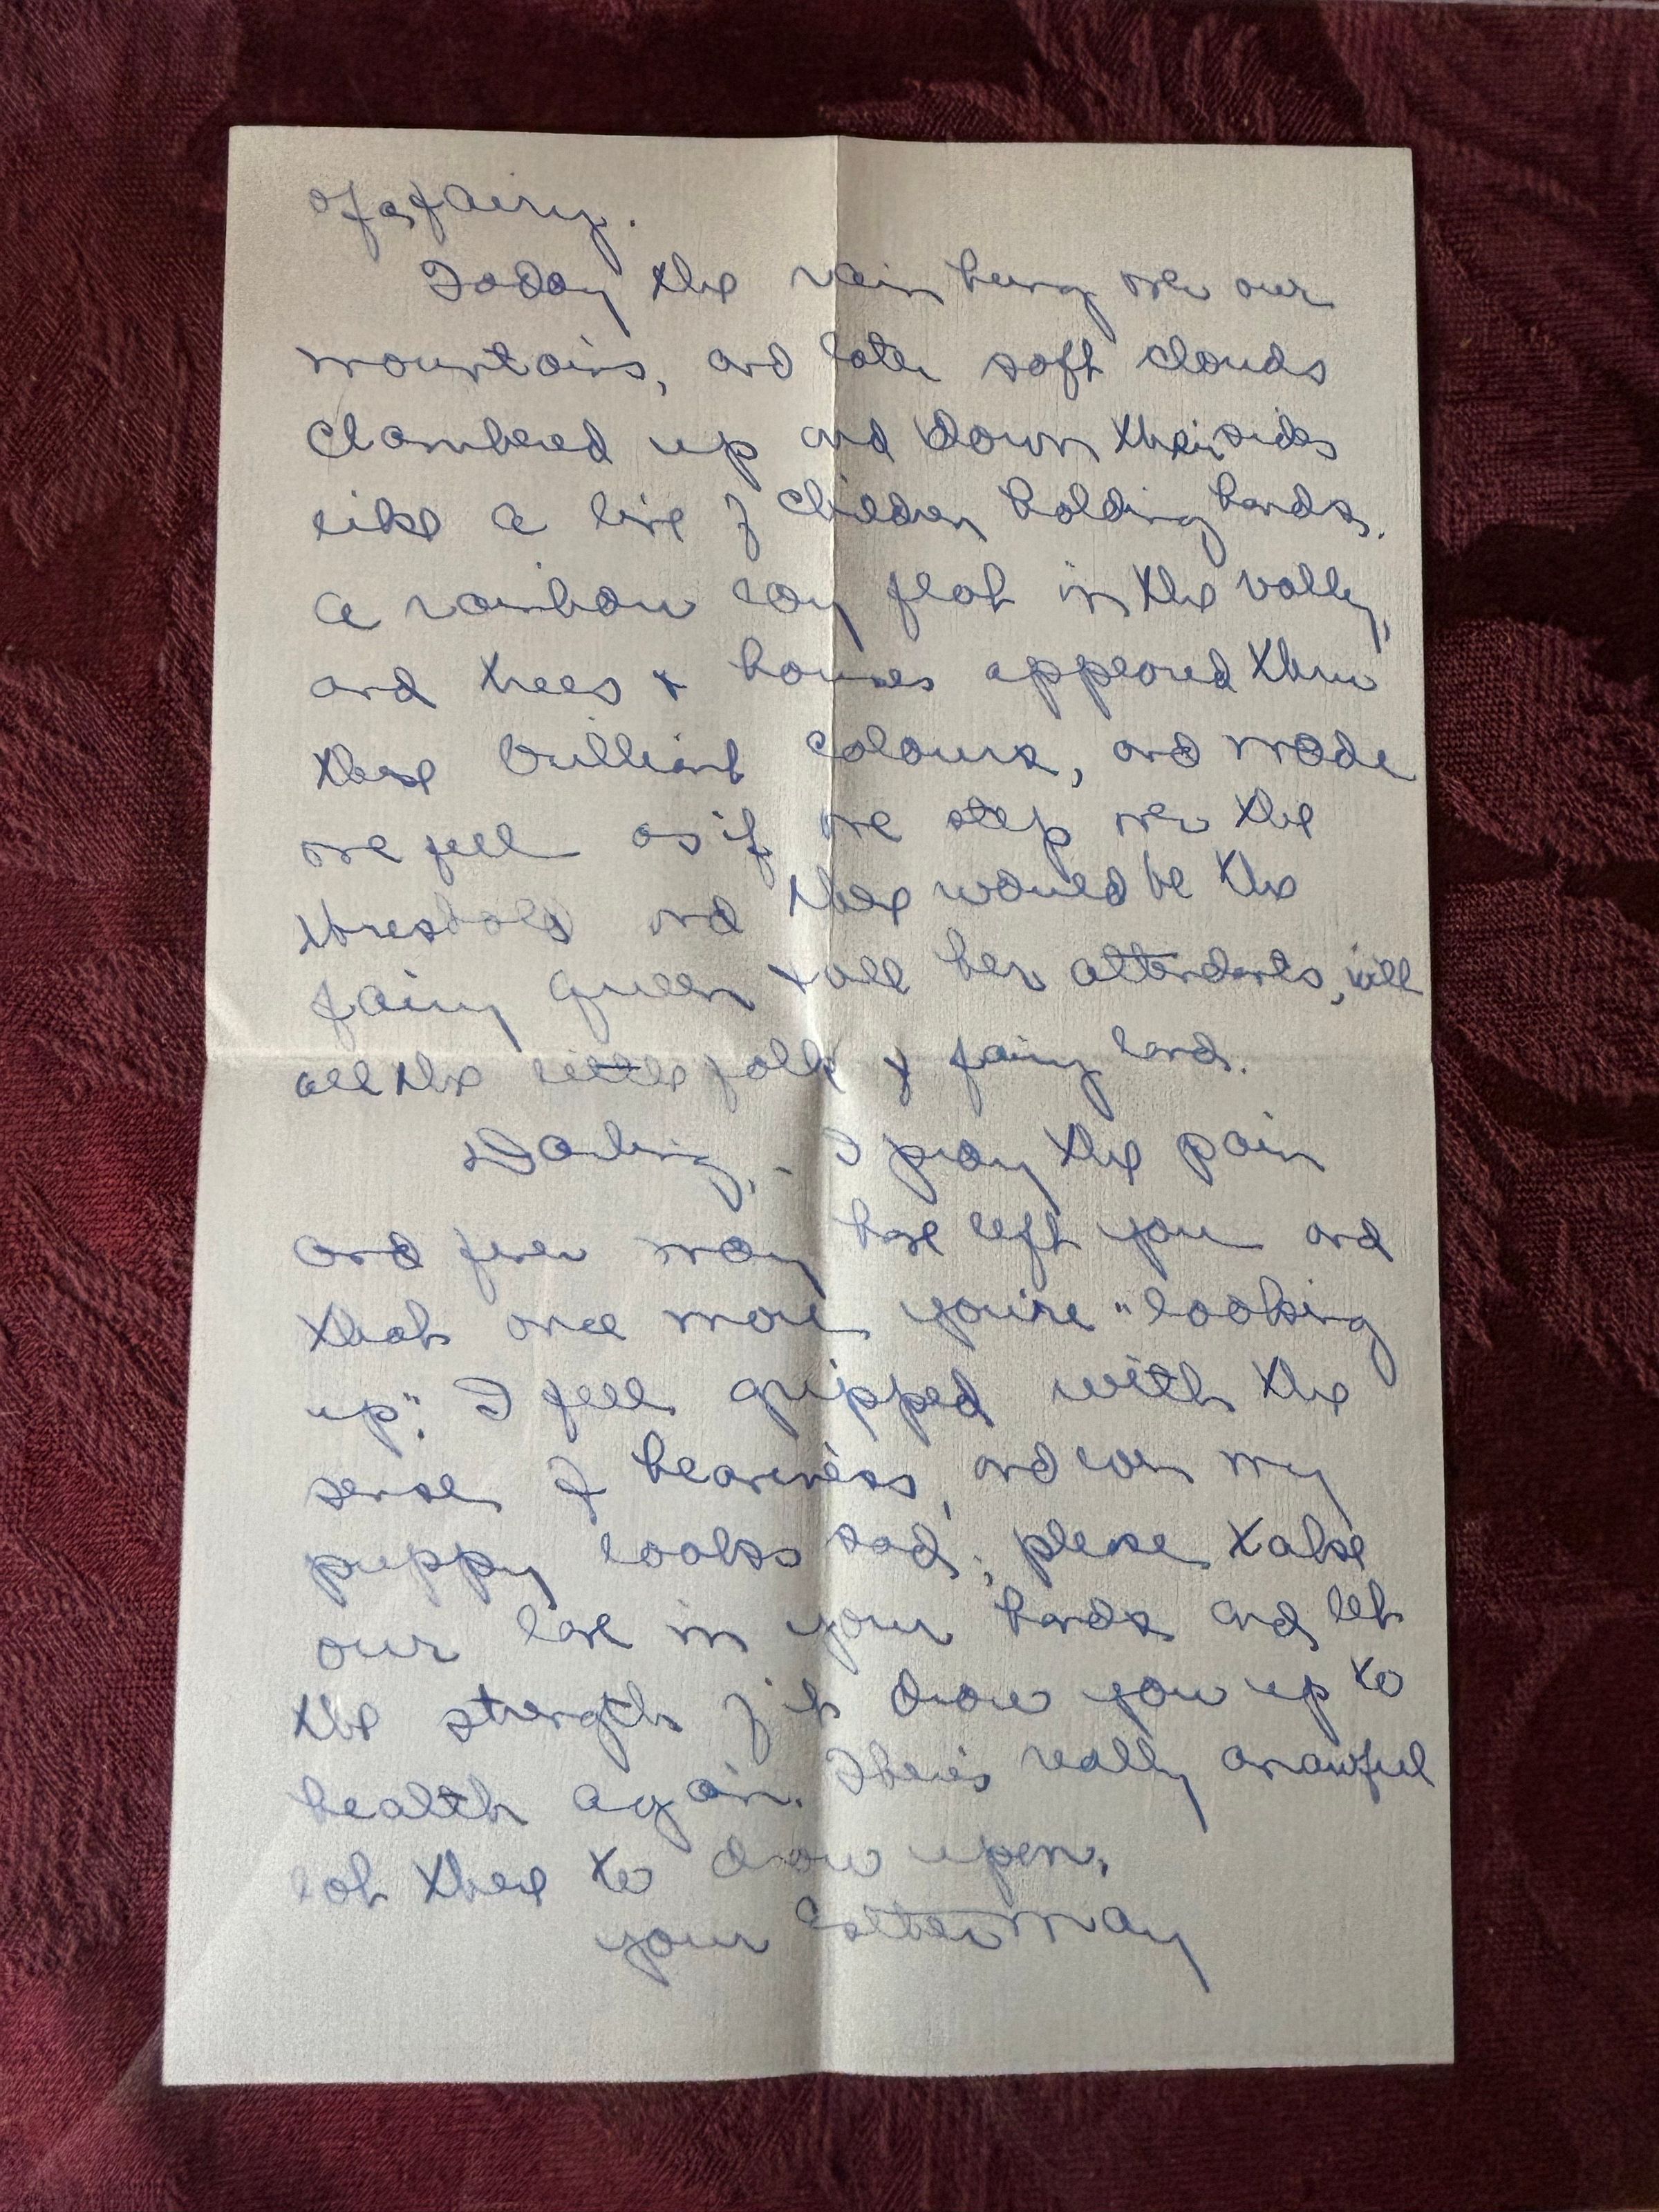 of a fairy.
Today the rain hung over our
mountains, and later soft clouds
clambered up and down their sides
like a line of children holding hands.
a rainbow lay flat in the valley,
and trees & houses appeared thru
these brilliant colours, and made
me feel as if one step over the
threshold and there would be the
fairy queen & all her attendants, &
all the little folk of fairy land.
Darling, - I pray the pain
and fever may have left you and
that once more you're "looking
up". I feel gripped with the
sense of heaviness, and even my
puppy looks sad; please take
our love in your hands and let
the strength of it draw you up to
health again. There's really an awful
lot there to draw upon.
your Esther May